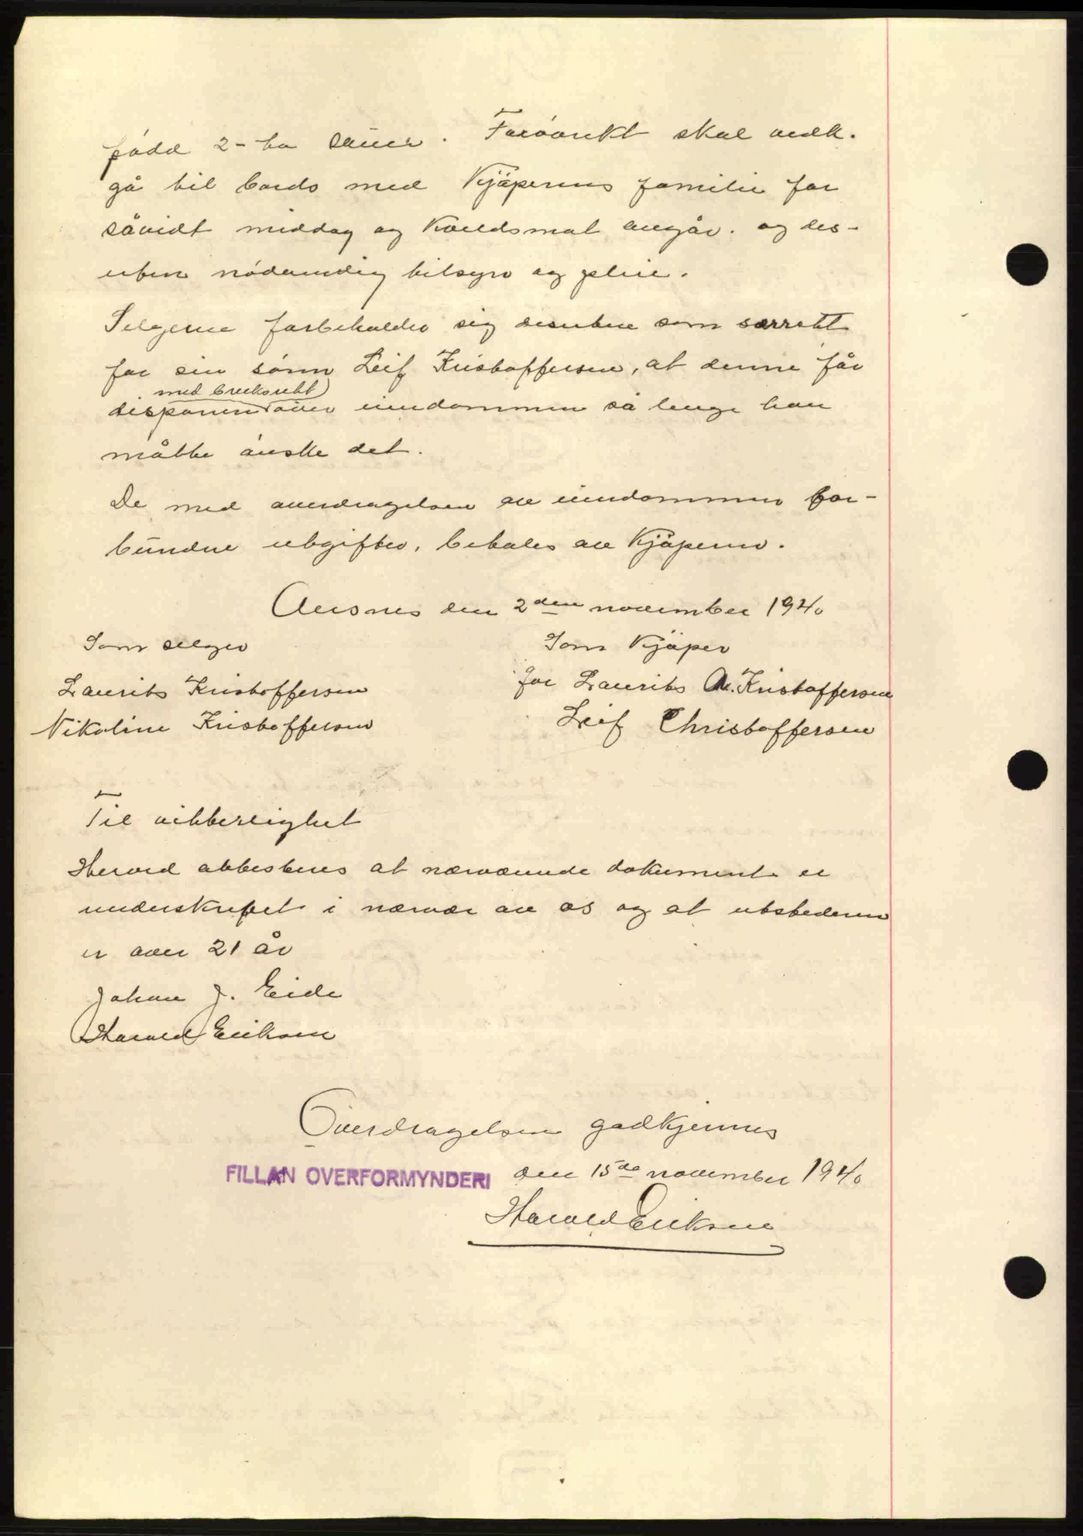 född 2-to sauer. Forövrikt skal vedk.
gå til bords med Kjöperens familie for
såvidt middag og kveldsmat angår. og des-
uten nödvendig tilsyn og pleie.
Selgerne forbeholder sig desuten som særrett
for sin sönn Leif Kristoffersen, at denne får
med bruksrett
disponere over eiendommen så lenge han
måtte önske det.
De med overdragelsen av eiendommen for-
bundne utgifter, betales av Kjöperen.
Ansnes den 2den november 1940
Som selger
Som Kjöper
Laurits Kristoffersen
for Laurits M. Kristoffersen
Nikoline Kristoffersen
Leif Christoffersen
Til vitterlighet
Herved attesteres at nærværende dokument er
underskrevet i nærvær av os og at utstederen
er over 21 år
Johan J. Eide
Harald Eriksen
Overdragelsen godkjennes
FILLAN OVERFORMYNDERI den 15de november 1940
Harald Eriksen